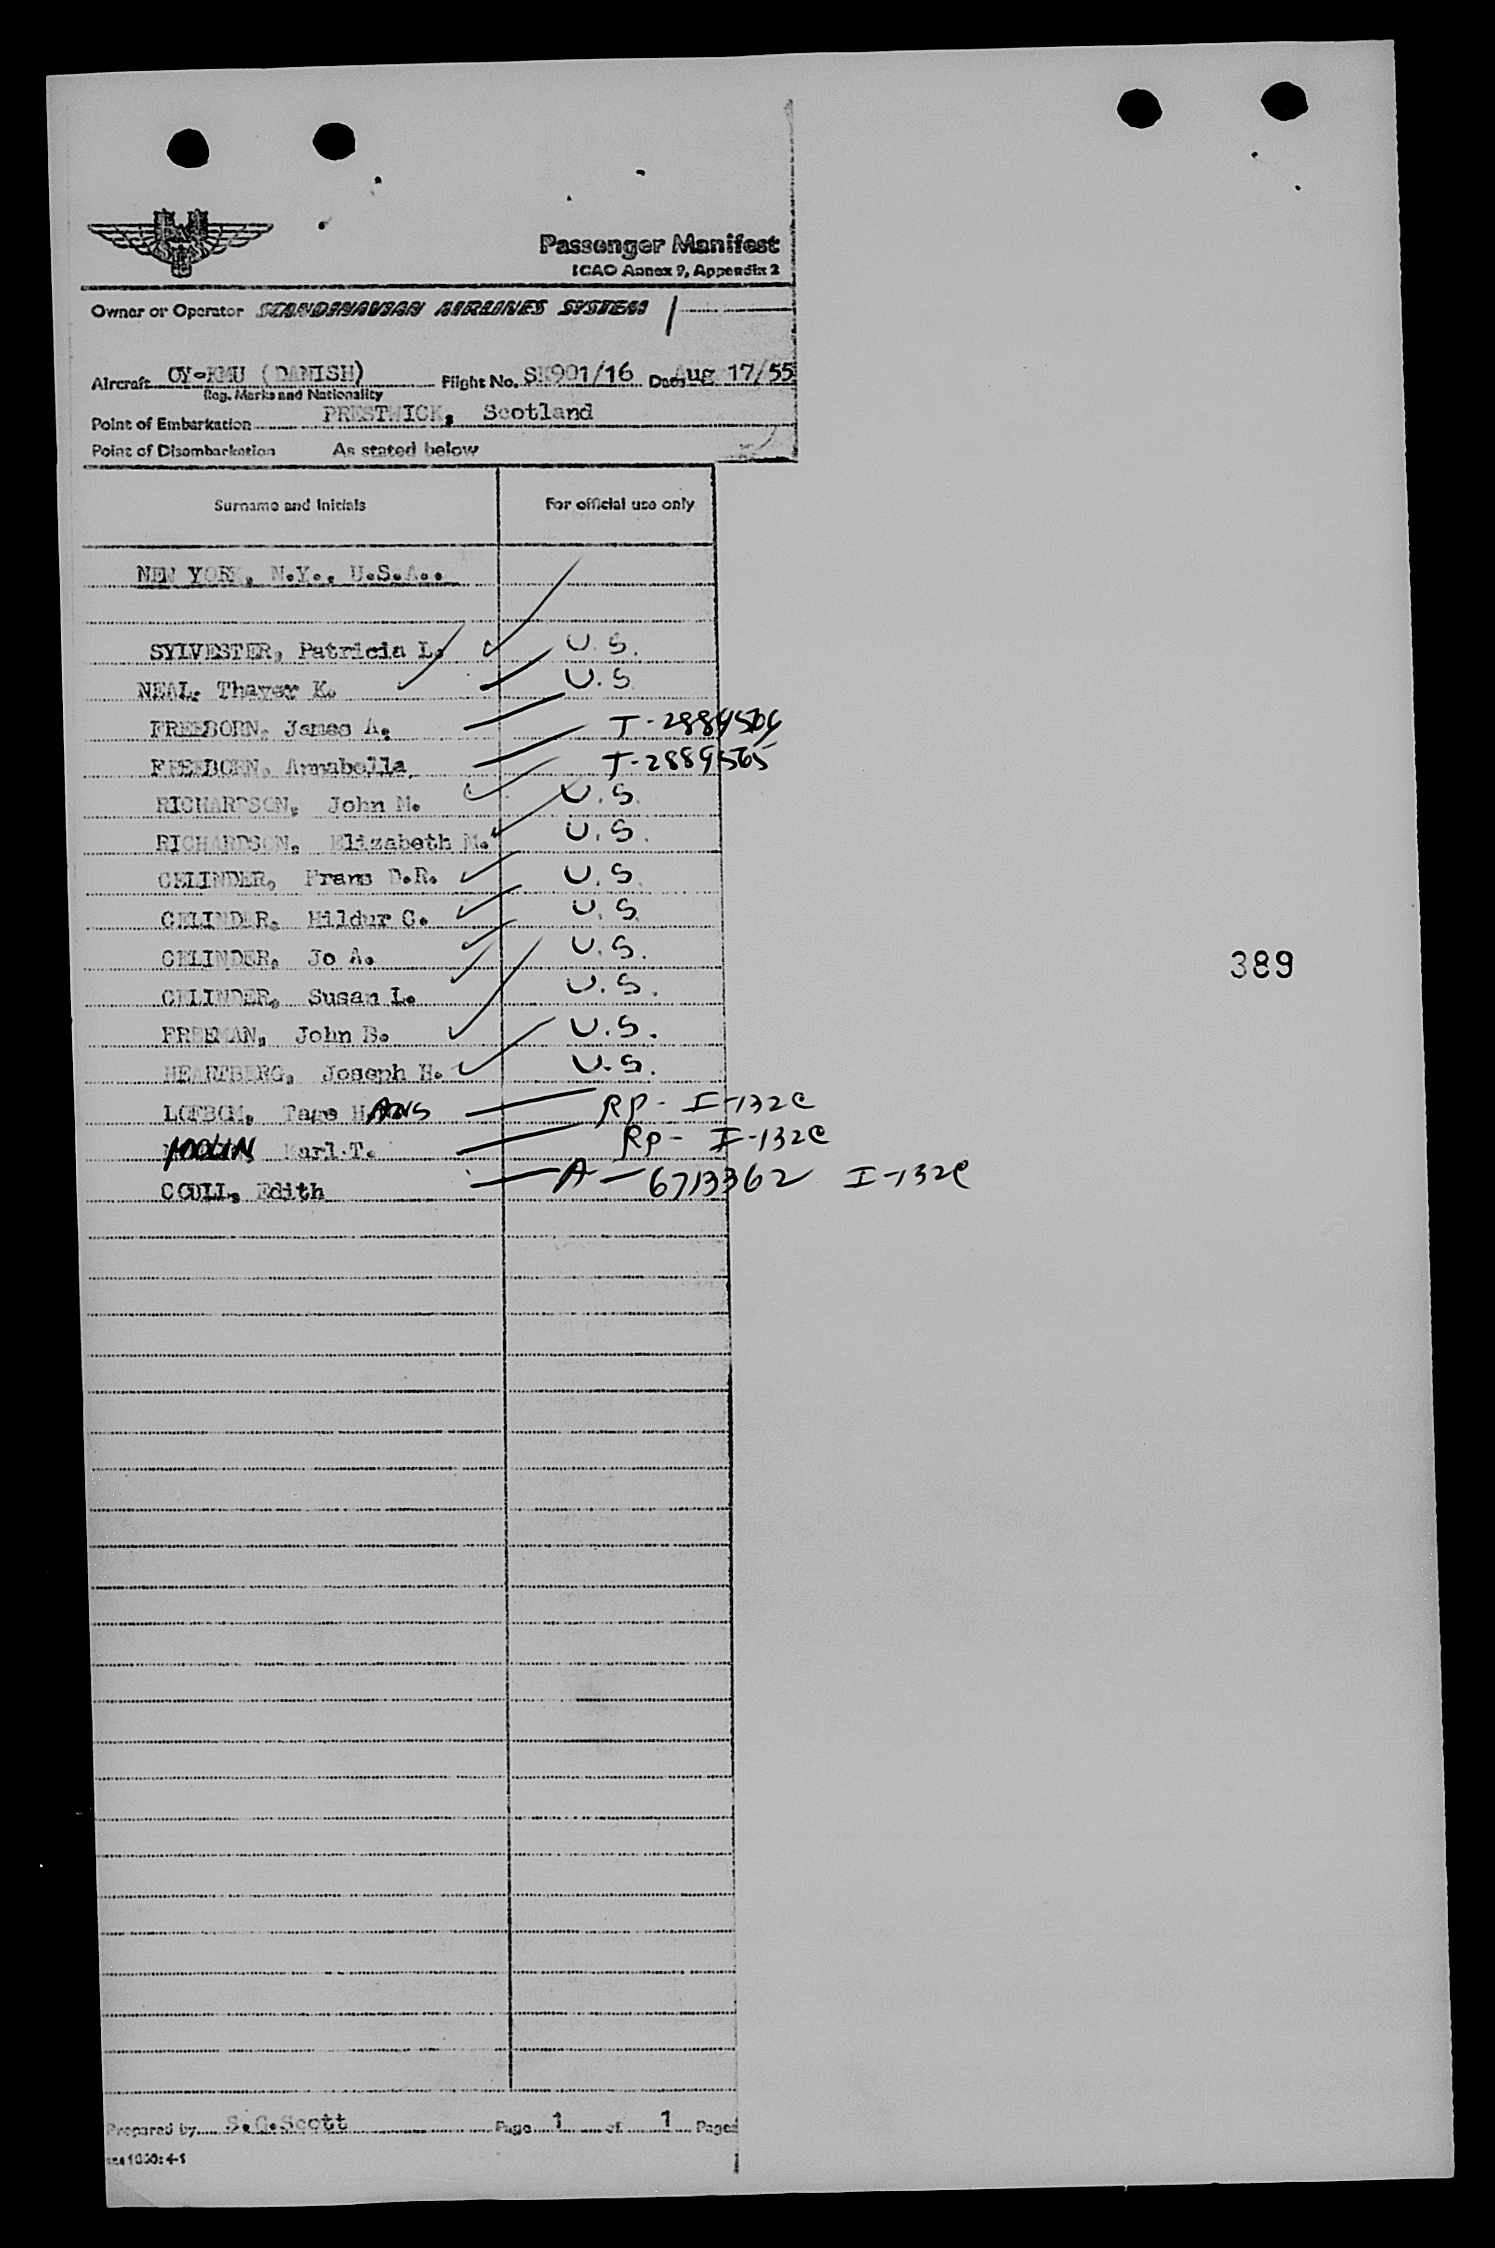 Passenger Manifest
ICAO Annex 9, Appendix 2
Owner or Operator SCANDINAVIAN AIRLINES SYSTEM
Aircraft OY-KMU (DANISH) Flight No. SK901/16 Date Aug 17/55
Reg. Marks and Nationality
Point of Embarkation PRESTWICK, Scotland
Point of Disembarkation As stated below
Surname and Initials For official use only
NEW YORK, N.Y., U.S.A..
SYLVESTER, Patricia L. U.S.
NEAL. Thayer K. U.S.
FREEBORN, James A. T-2889564
FREEBORN, Annabella T-2889565
RICHARDSON, John M. U.S.
RICHARDSON, Elizabeth M. U.S.
CELINDER, Frans D.R. U.S.
CELINDER, Hildur C. U.S.
CELINDER, Jo A. U.S.
CELINDER, Susan L. U.S.
FREEMAN, John B. U.S.
HEARTBERG, Joseph H. U.S.
LOFBOM, Tage HANS RP- I-132C
Karl T. RP- I-132C
COULL, Edith A-6713362 I-132C
389
Prepared by S.G.Scott Page 1 of 1 Pages